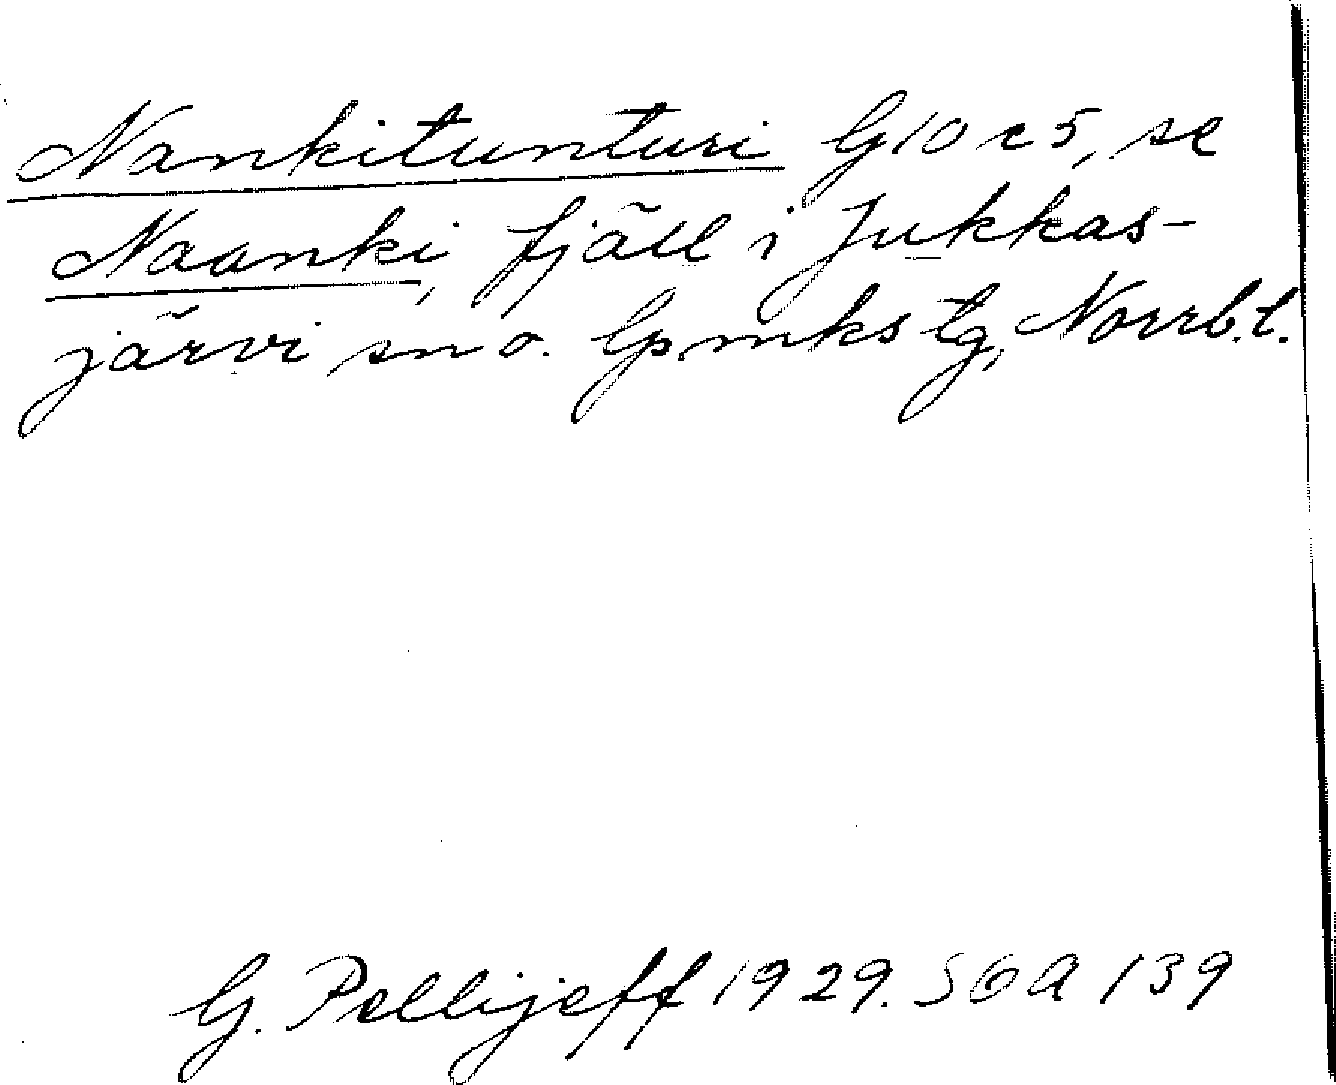 Nankitunturi G10c5, se
Naanki, fjäll i Jukkas-
järvi sn o. lpmks tg, Norrb. l.
G. Pellijeff 1929. SOA 139